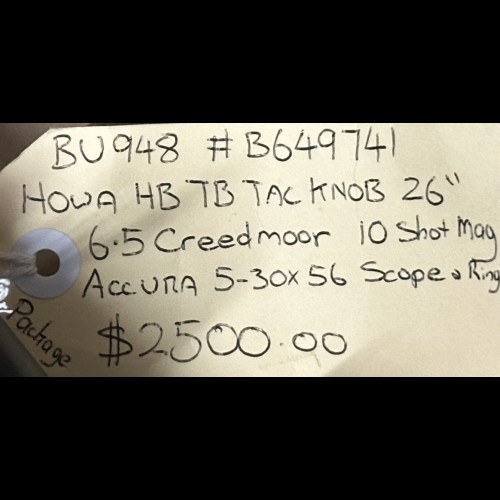 BU948 #B649741
HOWA HB TB TAC KNOB 26"
6.5 Creedmoor 10 Shot Mag
ACCURA 5-30x56 Scope & Ring
$2500.00
Package